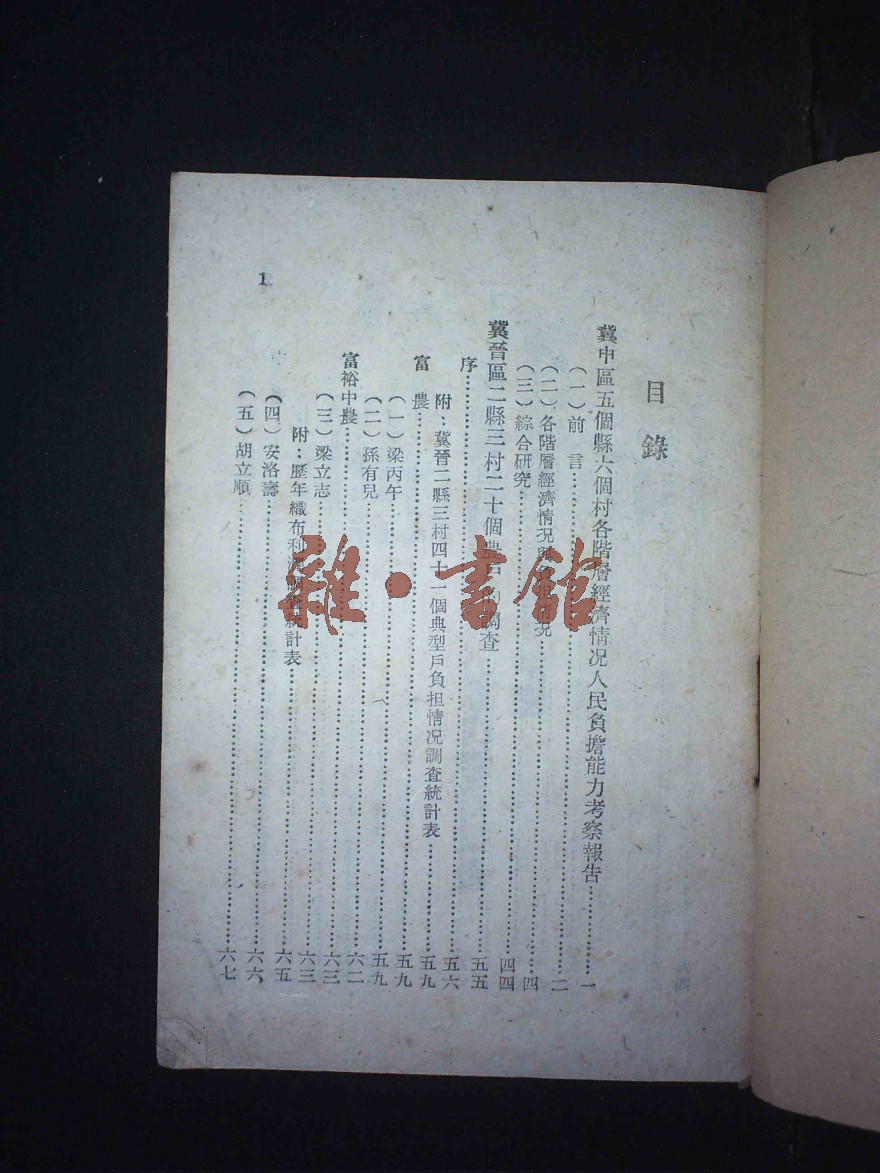 目錄
冀中區五個縣六個村各階層經濟情况人民負擔能力考察報告……一
（一）前言……二
（二）各階層經濟情况與情况……四
（三）綜合研究……四四
冀晉區二縣三村二十個農的調查……五五
序……五六
附：冀晉二縣三村四十一個典型戶負担情况調查統計表……五九
富農……五九
（一）梁丙午……五九
（二）孫有兒……六二
富裕中農……六三
（三）梁立志……六三
附：歷年織布利調查統計表……六五
（四）安洛壽……六六
（五）胡立順……六七
1
雜·書館